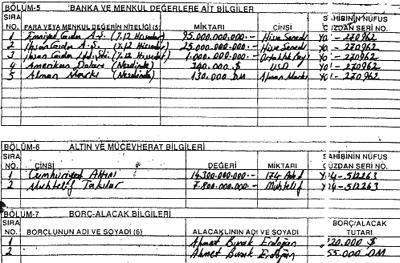 BÖLÜM-5 BANKA VE MENKUL DEĞERLERE AİT BİLGİLER
SIRA NO. PARA VEYA MENKUL DEĞERİN NİTELİĞİ (5) MİKTARI CİNSİ SAHİBİNİN NÜFUS CÜZDAN SERİ NO.
1 Emniyet Gıda A.Ş. 95.000.000.000.- Hisse Senedi 270962
2 İhsan Gıda A.Ş. 25.000.000.000.- Hisse Senedi 270962
3 İhsan Gıda Ltd. Şti. 1.000.000.000.- 270962
4 Amerikan Doları (Nezdinde) $ USD 270962
5 Alman Markı (Nezdinde) 130.000 DM Alman Markı 270962
BÖLÜM-6 ALTIN VE MÜCEVHERAT BİLGİLERİ
SIRA NO. ÇİNSİ DEĞERİ MİKTARI SAHİBİNİN NÜFUS CÜZDAN SERİ NO.
1 Cumhuriyet Altını 14.300.000.000.- 174 512263
2 Muhtelif Takılar 7.800.000.000.- Muhtelif 512263
BÖLÜM-7 BORÇ-ALACAK BİLGİLERİ
SIRA NO. BORÇLUNUN ADI VE SOYADI (6) ALACAKLININ ADI VE SOYADI BORÇ/ALACAK TUTARI
1 Ahmet Burak Erdoğan 220.000 $
2 Ahmet Burak Erdoğan 55.000 DM